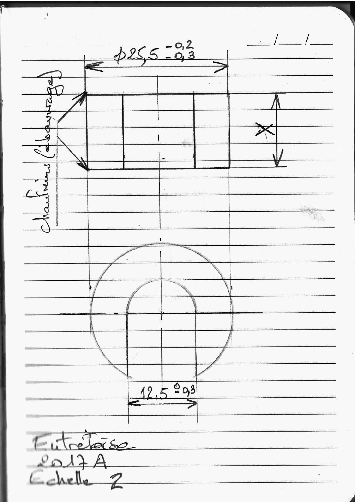 φ25,5 -0,2
-0,3
_ / _ / _
chanfreins (ébavurage)
X
12,5 0
-0,3
Entretoise
2017A
Echelle 2